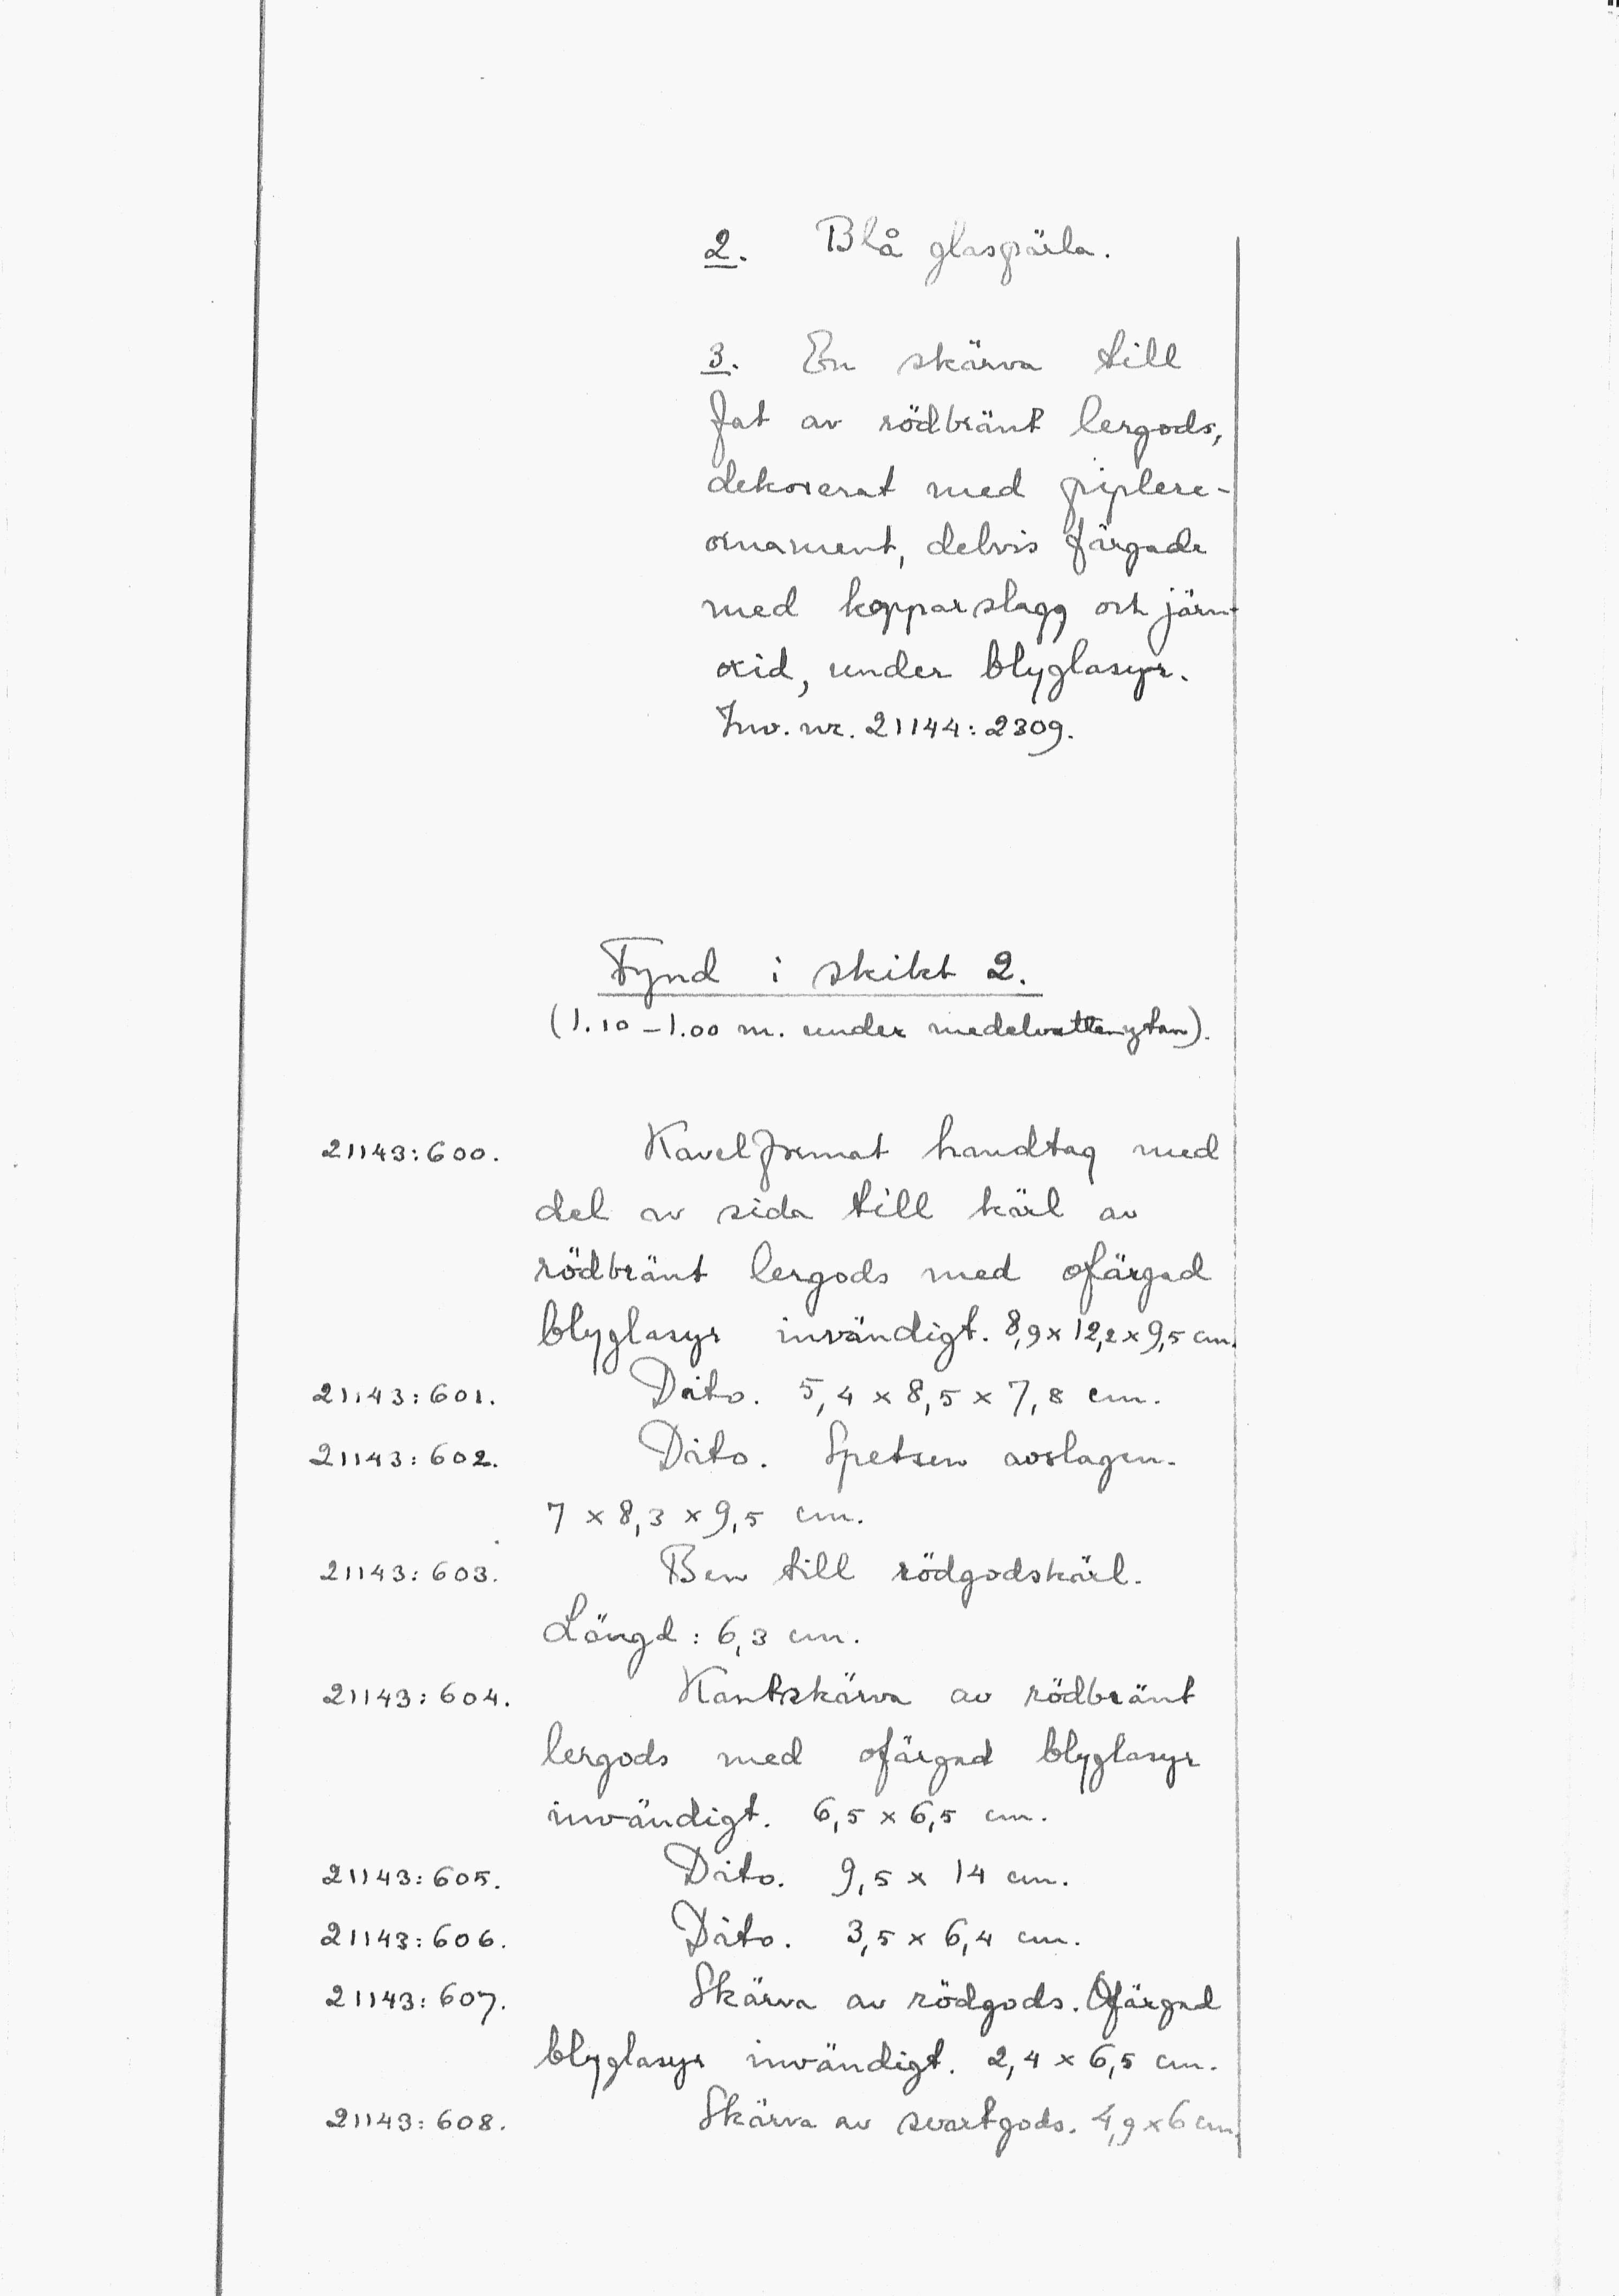 2. Blå glaspärla.
3. En skärva till
fat av rödbränt lergods,
dekorerat med piplere-
ornament, delvis färgade
med kopparslagg och järn-
oxid, under blyglasyr.
Inv. nr. 21144:2309.
Fynd i skikt 2.
(1.10-1.00 m. under medelvattenytan).
21143:600. Kavelformat handtag med
del av sida till kärl av
rödbränt lergods med ofärgad
blyglasyr invändigt. 8,9 x 12,2 x 9,5 cm.
21143:601. Dito. 5,4 x 8,5 x 7,8 cm.
21143:602. Dito. Spetsen avslagen.
7 x 8,3 x 9,5 cm.
21143:603. Ben till rödgodskärl.
Längd: 6,3 cm.
21143:604. Kantskärva av rödbränt
lergods med ofärgad blyglasyr
invändigt. 6,5 x 6,5 cm.
21143:605. Dito. 9,5 x 14 cm.
21143:606. Dito. 3,5 x 6,4 cm.
21143:607. Skärva av rödgods. Ofärgad
blyglasyr invändigt. 2,4 x 6,5 cm.
21143:608. Skärva av svartgods. 4,9 x 6 cm.